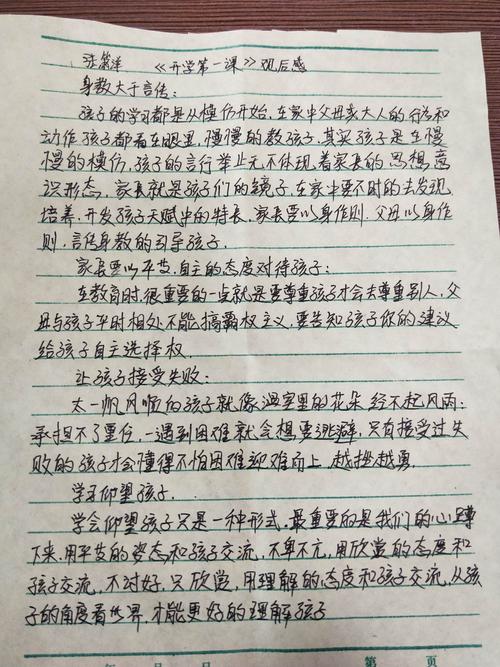 《开学第一课》观后感
身教大于言传：
孩子的学习都是从模仿开始，在家中父母亲大人的行为和
动作孩子都看在眼里，慢慢的教孩子，其实孩子是在慢
慢的模仿，孩子的言行举止无不体现着家长的思想，意
识形态，家长就是孩子们的镜子，在家中要不时的去发现
培养，开发孩子天赋中的特长，家长要以身作则，父母以身作
则，言传身教的引导孩子，
家长要以平等，自主的态度对待孩子：
在教育时，很重要的一点就是要尊重孩子才会去尊重别人，父
母与孩子平时相处不能搞霸权主义，要告知孩子你的建议
给孩子自主选择权，
让孩子接受失败：
太一帆风顺的孩子就像温室里的花朵，经不起风雨；
承担不了重任，一遇到困难就会想要逃避，只有接受过失
败的孩子才会懂得不怕困难迎难而上，越挫越勇
学习仰望孩子，
学会仰望孩子只是一种形式，最重要的是我们的心蹲
下来，用平等的姿态和孩子交流，不卑不亢，用欣赏的态度和
孩子交流，不讨好，只欣赏，用理解的态度和孩子交流，从孩
子的角度看世界，才能更好的理解孩子
年 月 日 第 页